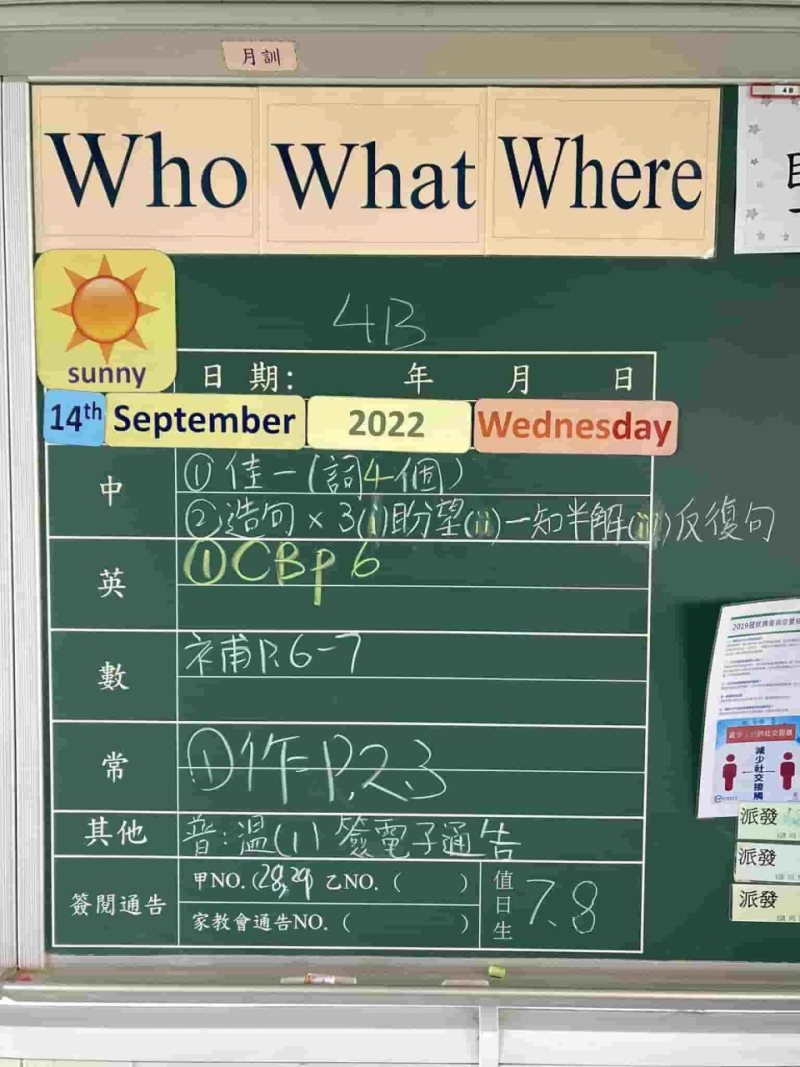 月訓
Who What Where
4B
sunny
4B
日 期: 年 月 日
14th September 2022 Wednesday
中
①佳一(詞4個)
②造句×3(i)盼望(ii)一知半解(iii)反復句
英
①CBp6
數
補P.6-7
常
①作P.2.3
其他
普:溫(1) 簽電子通告
簽閱通告
甲NO.(28,29) 乙NO.( )
家教會通告NO.( )
值日生
7、8
減少社交接觸
派發
派發
派發